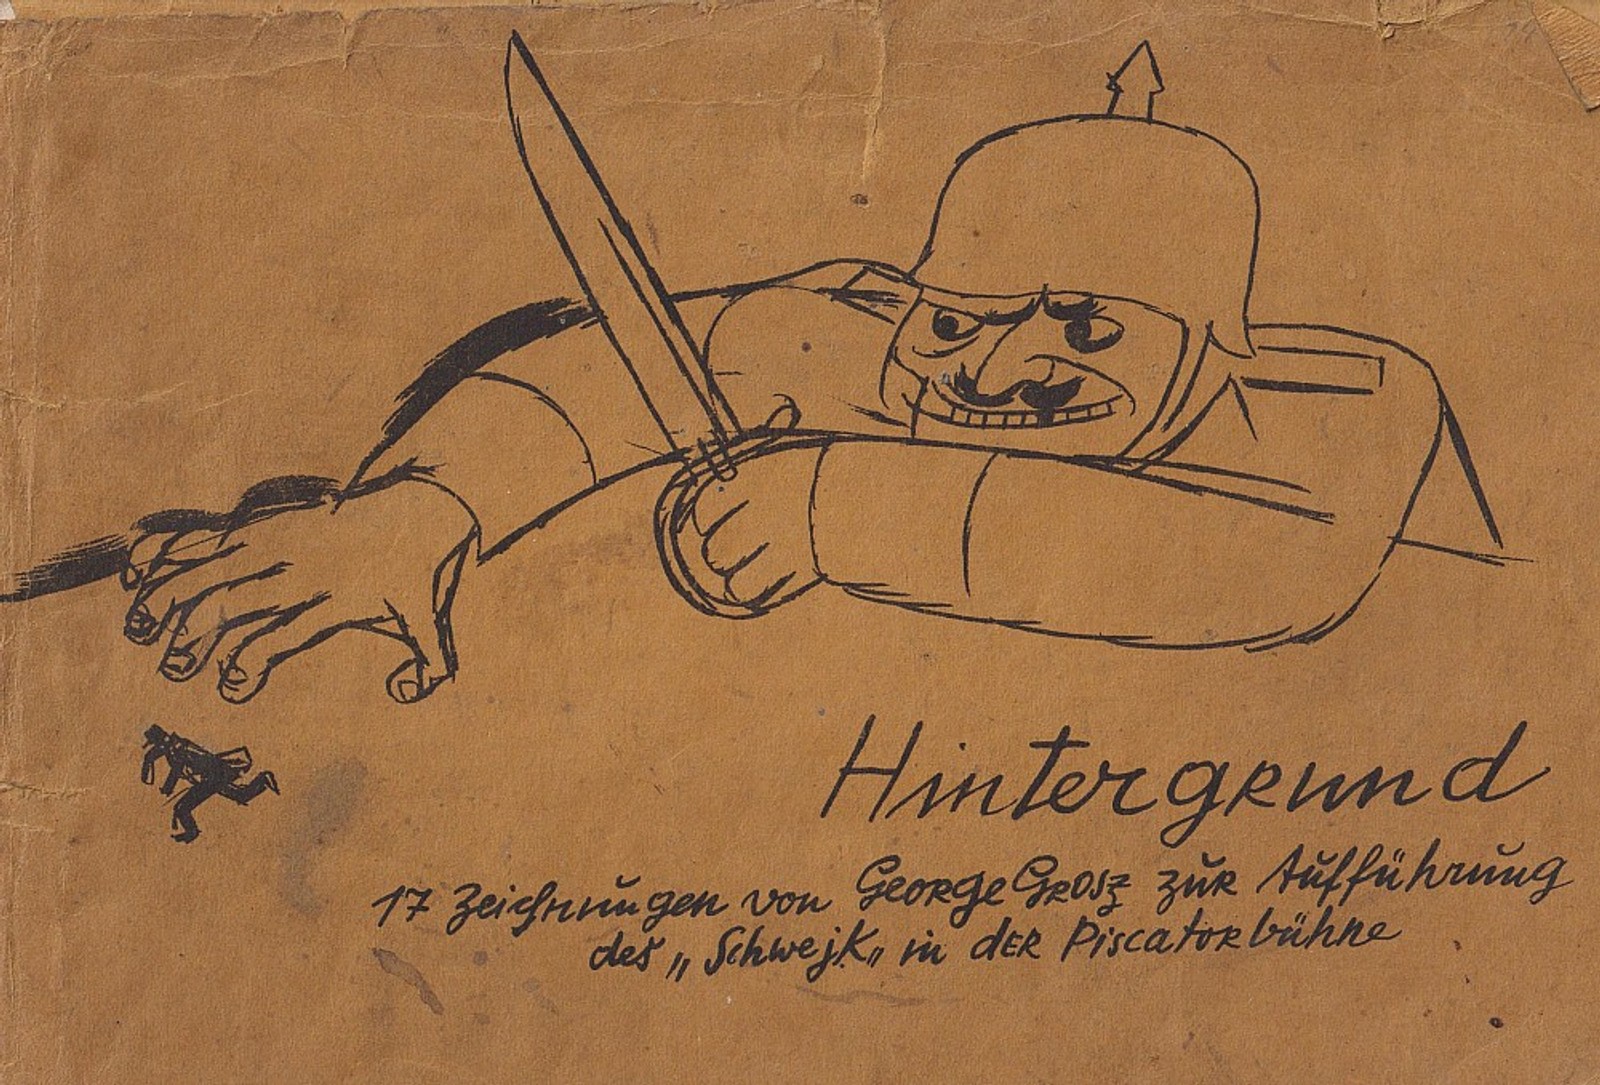 Hintergrund
17 Zeichnungen von George Grosz zur Aufführung
des „Schwejk„ in der Piscatorbühne